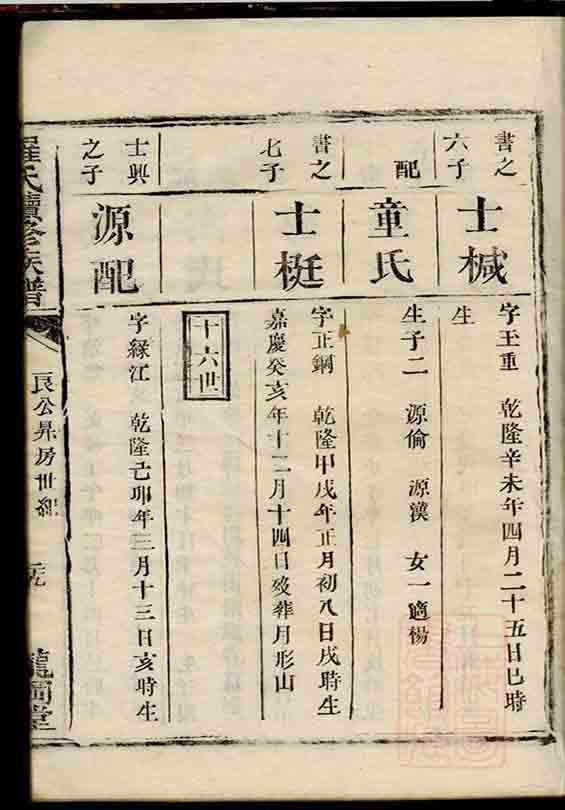 書之
六子
士椷
字王重 乾隆辛未年四月二十五日巳時
生
配
童氏
生子二 源倫 源漢 女一適楊
書之
七子
士梃
字正鋼 乾隆甲戌年正月初八日戌時生
嘉慶癸亥年十二月十四日歿葬月形山
十六世
士興
之子
源配
字緑江 乾隆己卯年三月十三日亥時生
羅氏續修族譜
良公昇房世紀
龍圖堂